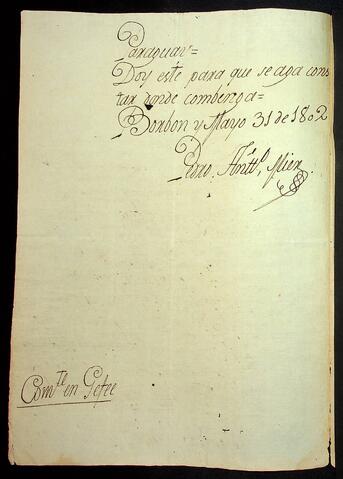 Paraguay=
Doy este para que se aga cons
tar donde combenga=
Borbon y Mayo 31 de 1802
Pedro Antto. Mier
Comte. en Gefee